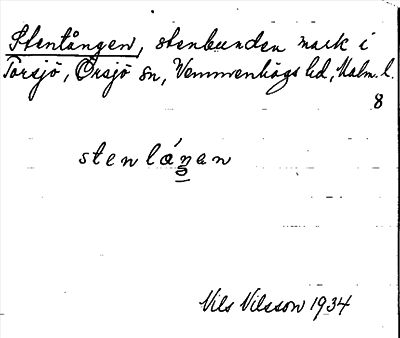 Stentången, stenbunden mark i
Torsjö, Örsjö sn, Vemmenhögs hd, Malm. l.
8
stenlånan
Nils Nilsson 1934